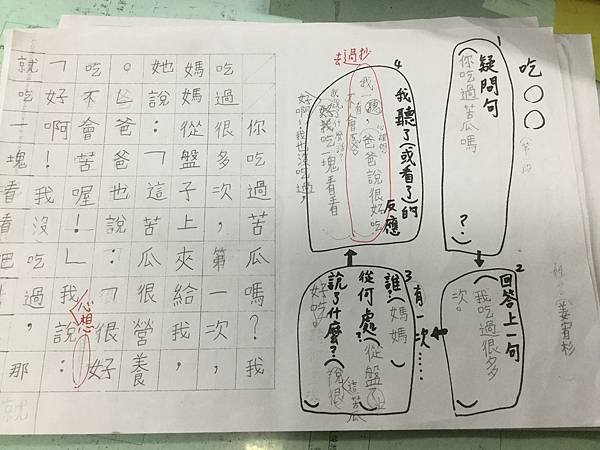 吃〇〇
1
疑問句
(你吃過苦瓜嗎?)
2
回答上一句
(我吃過很多
次。)
3
有一次……
誰?(媽媽)
從何處?(從盤子
說了什麼?(說很
這苦瓜
好吃。)
4
去過抄
我聽了(或看了)的
反應
我一聽,爸爸說很好吃
好我吃一塊看看
好啊!我也沒吃過,
你吃過苦瓜嗎?我
吃過很多次,第一次,
媽媽從盤子上夾給我,
她說:「這苦瓜很營養
。」爸爸也說:「很好
吃不會苦喔!」我說:
心想
「好啊!我沒吃過,
就吃一塊看看吧!那
就